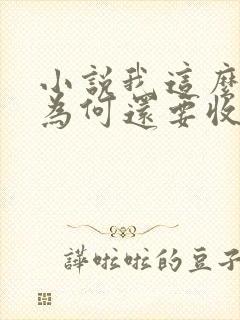 小說我這麼
為何還要收
譁啦啦的豆子